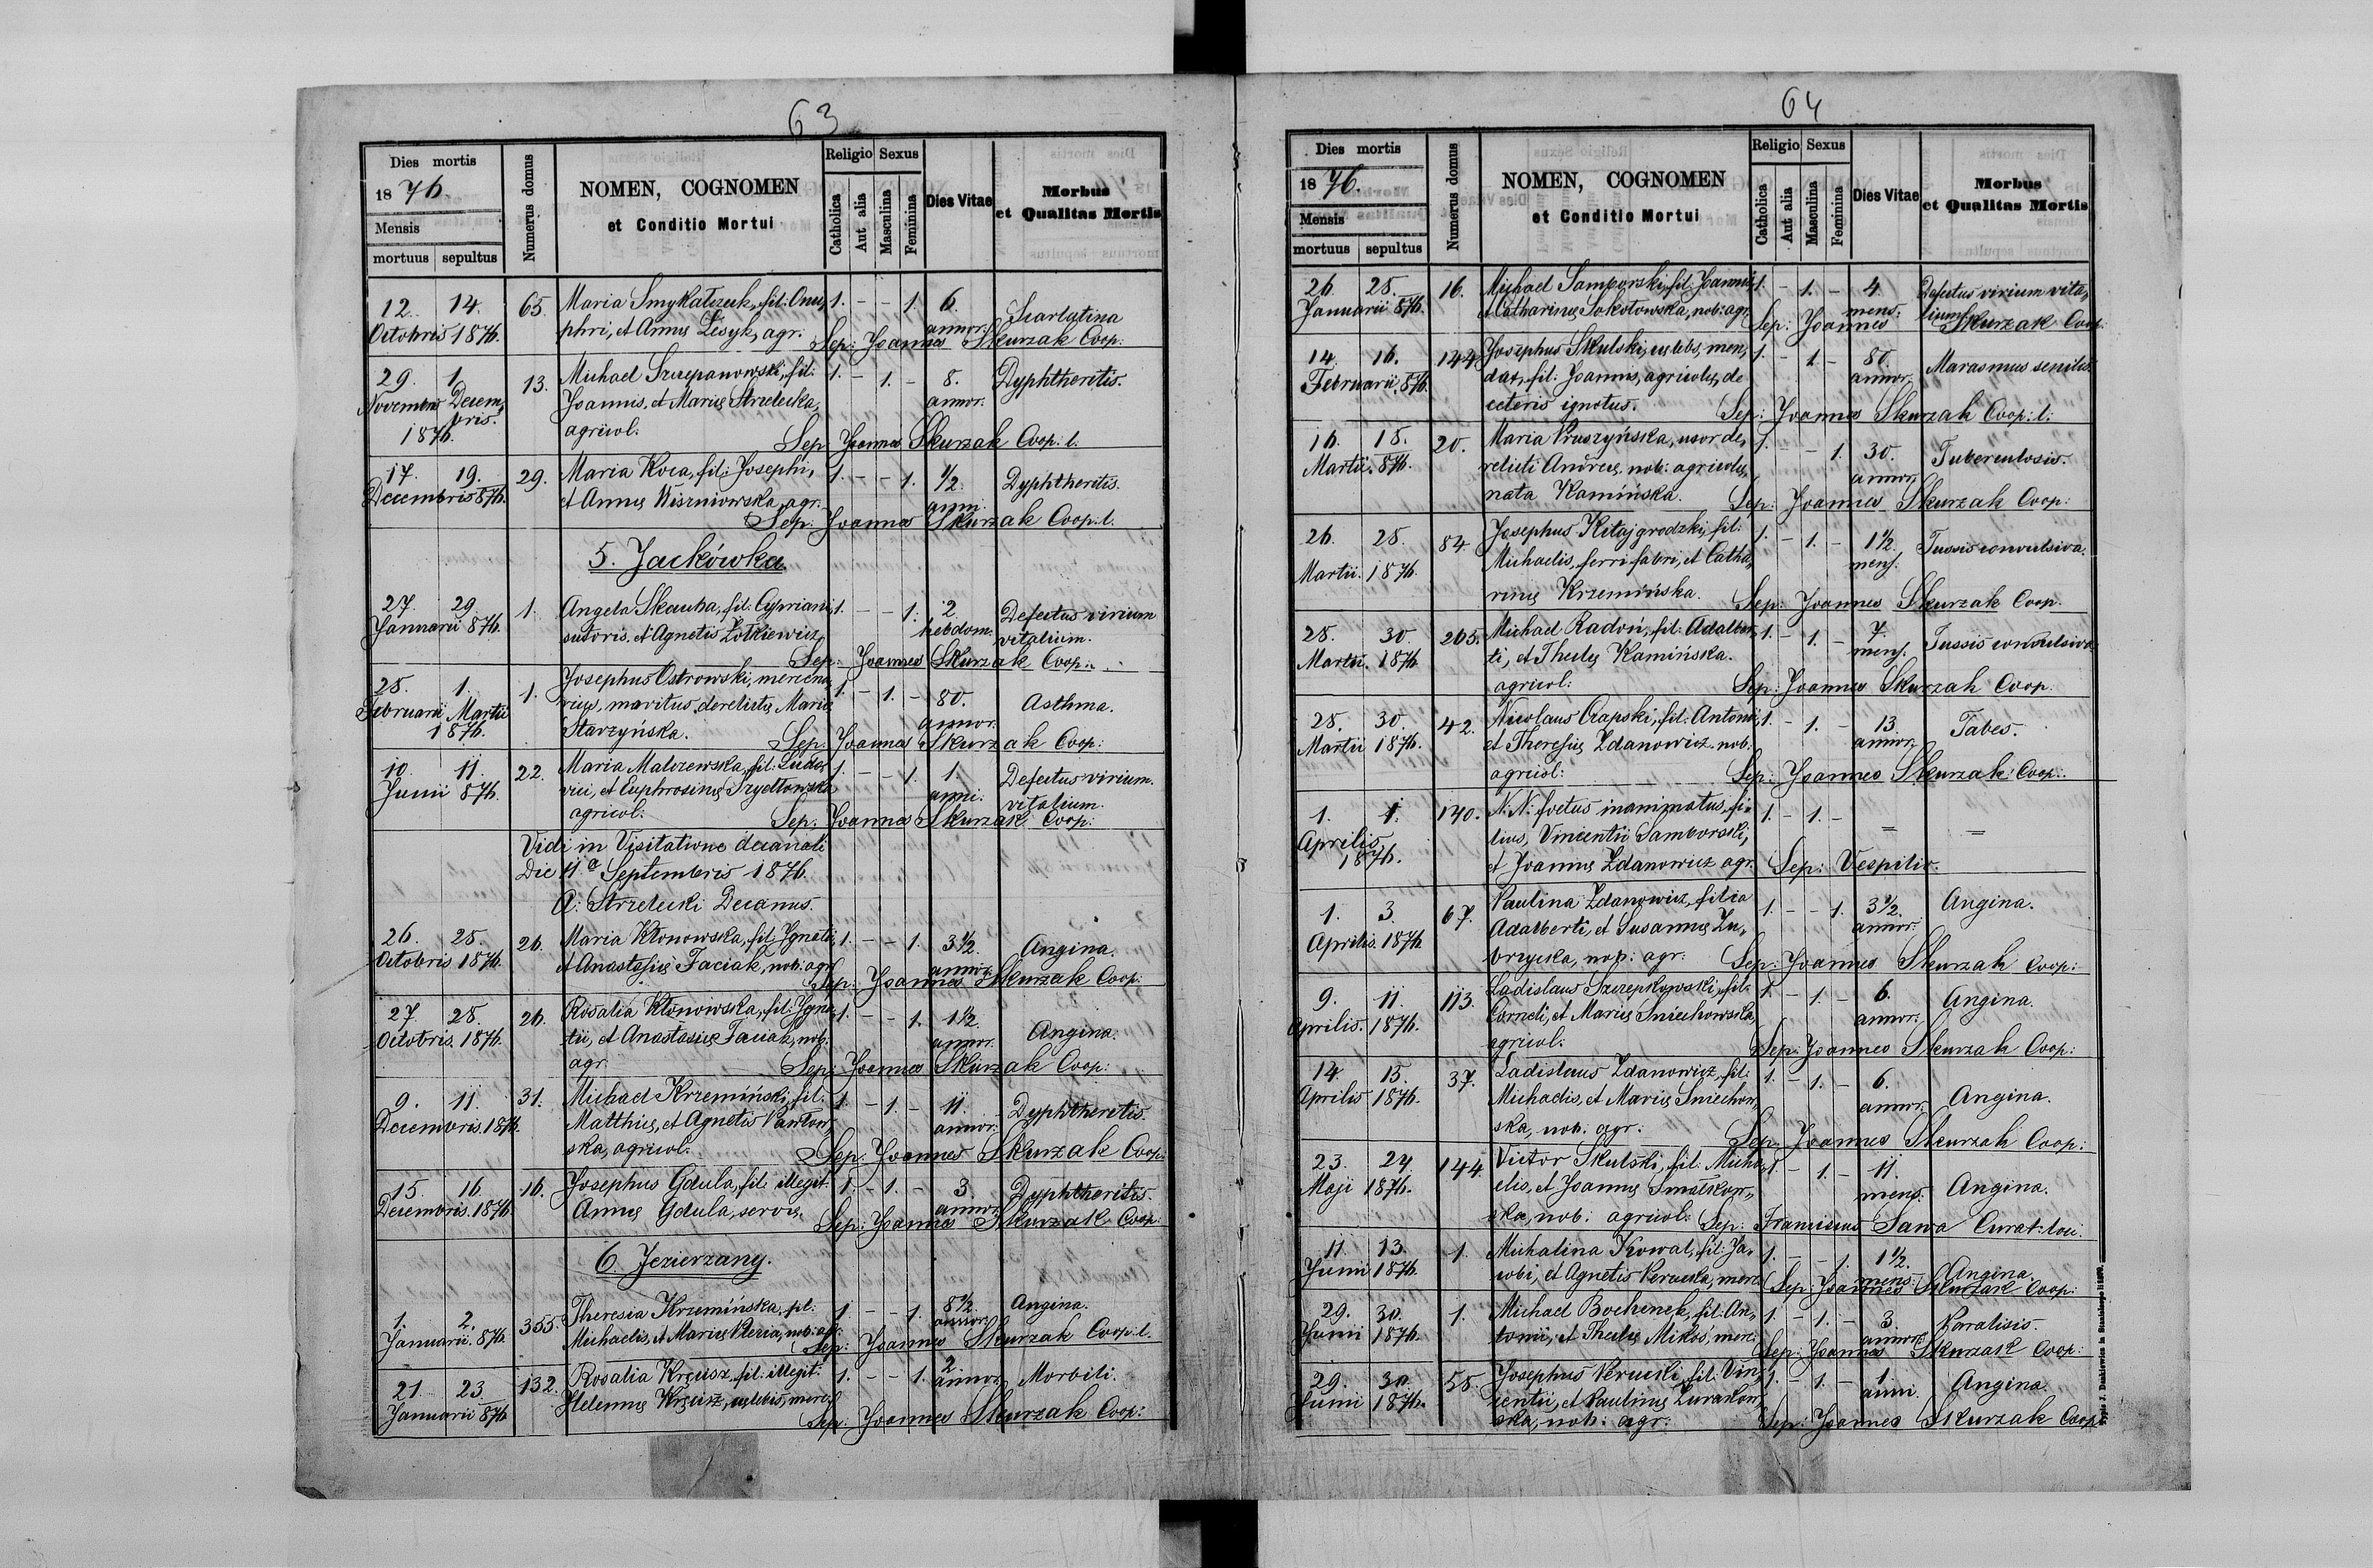 63
Dies mortis
1876.
Mensis
mortuus sepultus
Numerus domus
NOMEN, COGNOMEN
et Conditio Mortui
Religio Sexus
Catholica
Aut alia
Masculina
Feminina
Dies Vitae
Morbus
et Qualitas Mortis
12. 14. 65. Maria Smykalczuk, fil: Onu, 1. - - 1. 6.
Octobris 1876. phri, et Annæ Lisyk, agr. annor. Scarlatina
Sep: Joannes Skurzak Coop:
29. 1. 13. Michael Szczepanowski, fil: 1. - 1. - 8. Dyphtheritis.
Novembris Decem, Joannis, et Mariæ Strzelecka, annor.
bris.
1876. agricol.
Sep: Joannes Skurzak Coop: l.
17. 19. 29. Maria Koca, fil: Josephi, 1. - - 1. 1/2. Dyphtheritis.
Decembris 876. et Annæ Wiszniowska, agr. anni.
Sep: Joannes Skurzak Coop: l.
5. Jackówka.
27. 29. 1. Angela Skauba, fil: Cypriani, 1. - - 1. 2 Defectus virium
Januarii 876. sutoris, et Agnetis Żołkiewicz, hebdom. vitalium.
Sep: Joannes Skurzak Coop:
28. 1. 1. Josephus Ostrowski, mercena, 1. - 1. - 80. Asthma.
Februarii Martii rius, maritus derelictæ Mariæ annor.
1876. Starzyńska.
Sep: Joannes Skurzak Coop:
10. 11. 22. Maria Malczewska, fil: Ludo, 1. - - 1. 1. Defectus virium
Junii 876. vici, et Euphrosinæ Szydłowska anni. vitalium.
agricol:
Sep: Joannes Skurzak Coop:
Vidi in Visitatione decanali
Die 11ª Septembris 1876.
A: Strzelecki Decanus.
26. 28. 26. Maria Kłonowska, fil: Ignatii, 1. - - 1. 3 1/2. Angina.
Octobris 1876. et Anastasiæ Faciak, nob: agr. annor.
Sep: Joannes Skurzak Coop:
27. 28. 26. Rosalia Kłonowska, fil: Igna, 1. - - 1. 1 1/2. Angina.
Octobris. 1876. tii, et Anastasiæ Faciak, nob: annor.
agr.
Sep: Joannes Skurzak Coop:
9. 11. 31. Michael Krzemiński, fil: 1. - 1. - 11. Dyphtheritis.
Decembris. 1876. Matthiæ, et Agnetis Pawłow, annor.
ska, agricol.
Sep: Joannes Skurzak Coop:
15. 16. 16. Josephus Gdula, fil: illegit: 1. - 1. - 3. Dyphtheritis.
Decembris. 1876. Annæ Gdula, servæ. annor.
Sep: Joannes Skurzak Coop:
6. Jezierzany.
1. 2. 355. Theresia Krzemińska, fil: 1. - - 1. 8 1/2. Angina.
Januarii. 876. Michaelis, et Mariæ Reria, nob: agr: annor.
Sep: Joannes Skurzak Coop: l.
21. 23. 132. Rosalia Kręcisz, fil: illegit: 1. - - 1. 2. Morbili.
Januarii 876. Helennæ Kręcisz, cælebis, merc: annor.
Sep: Joannes Skurzak Coop:
64
Dies mortis
1876.
Mensis
mortuus sepultus
Numerus domus
NOMEN, COGNOMEN
et Conditio Mortui
Religio Sexus
Catholica
Aut alia
Masculina
Feminina
Dies Vitae
Morbus
et Qualitas Mortis
26. 28. 16. Michael Samborski, fil: Joannis, 1. - 1. - 4. Defectus virium vita,
Januarii 876. et Catharinæ Sokołowska, nob: agr. mens. lium.
Sep: Joannes Skurzak Coop:
14. 16. 144. Josephus Skulski, cælebs, men, 1. - 1. - 80. Marasmus senilis.
Februarii. 876. dax, fil: Joannis, agricolæ, de annor.
ceteris ignotus.
Sep: Joannes Skurzak Coop: l:
16. 18. 20. Maria Pruszyńska, uxor de, 1. - - 1. 30. Tuberculosis.
Martii. 876. relicti Andreæ, nob: agricolæ, annor.
nata Kamińska.
Sep: Joannes Skurzak Coop:
26. 28. 84. Josephus Kitajgrodzki, fil: 1. - 1. - 1 1/2. Tussis convulsiva.
Martii. 1876. Michaelis, ferri fabri, et Catha, mens.
rinæ Krzemińska.
Sep: Joannes Skurzak Coop.
28. 30. 265. Michael Radoń, fil: Adalber, 1. - 1. - 7. Tussis convulsiva.
Martii. 1876. ti, et Theclæ Kamińska. mens.
agricol:
Sep: Joannes Skurzak Coop.
28. 30. 42. Nicolaus Czapski, fil: Antonii, 1. - 1. - 13. Tabes.
Martii 1876. et Theresiæ Zdanowicz. nob. annor.
agricol:
Sep: Joannes Skurzak Coop:
1. 1. 140. N: N: foetus inanimatus, fi, 1. - 1. -
Aprilis, lius, Vincentii Samborski,
1876. et Joannæ Zdanowicz agr.
Sep: Vespilio.
1. 3. 67. Paulina Zdanowicz, filia 1. - - 1. 3 1/2. Angina.
Aprilis. 1876. Adalberti, et Susannæ Zu, annor.
brzycka, nob: agr:
Sep: Joannes Skurzak Coop:
9. 11. 113. Ladislaus Szczepkowski, fil: 1. - 1. - 6. Angina.
Aprilis. 1876. Corneli, et Mariæ Sniechowska, annor.
agricol:
Sep: Joannes Skurzak Coop:
14. 15. 37. Ladislaus Zdanowicz, fil: 1. - 1. - 6. Angina.
Aprilis 1876. Michaelis, et Mariæ Sniechow, annor.
ska, nob. agr.
Sep: Joannes Skurzak Coop:
23. 24. 144. Victor Skulski, fil: Micha, 1. - 1. - 11. Angina.
Maji 1876. elis, et Joannæ Smałkow, mens.
ska, nob: agricol:
Sep: Franciscus Sawa Curat: loci.
11. 13. 1. Michalina Kowal, fil: Ja, 1. - - 1. 1 1/2. Angina.
Junii 1876. cobi, et Agnetis Perucka, merc: mens.
Sep: Joannes Skurzak Coop:
29. 30. 1. Michael Bochenek, fil: An, 1. - 1. - 3. Paralisis.
Junii 1876. tonii, et Theclæ Mikoś, merc: annor.
Sep: Joannes Skurzak Coop:
29. 30. 58. Josephus Perucki, fil: Vin, 1. - 1. - 1. Angina.
Junii 1876. centii, et Paulinæ Zurakow, anni.
ska, nob: agr:
Sep: Joannes Skurzak Coop.
Typis J. Dankiewicz in Stanislaopoli 1870.